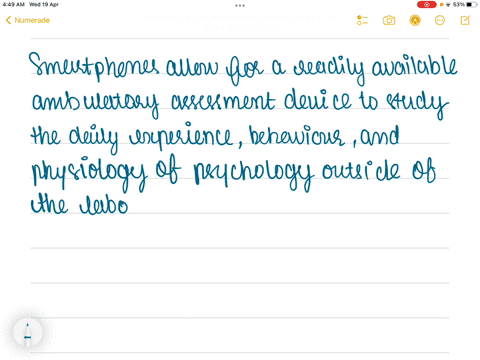 4:49 AM Wed 19 Apr
63%
Numerade
Smartphones allow for a readily available
ambulatory assessment device to study
the daily experience, behaviour, and
physiology of psychology outside of
the labo